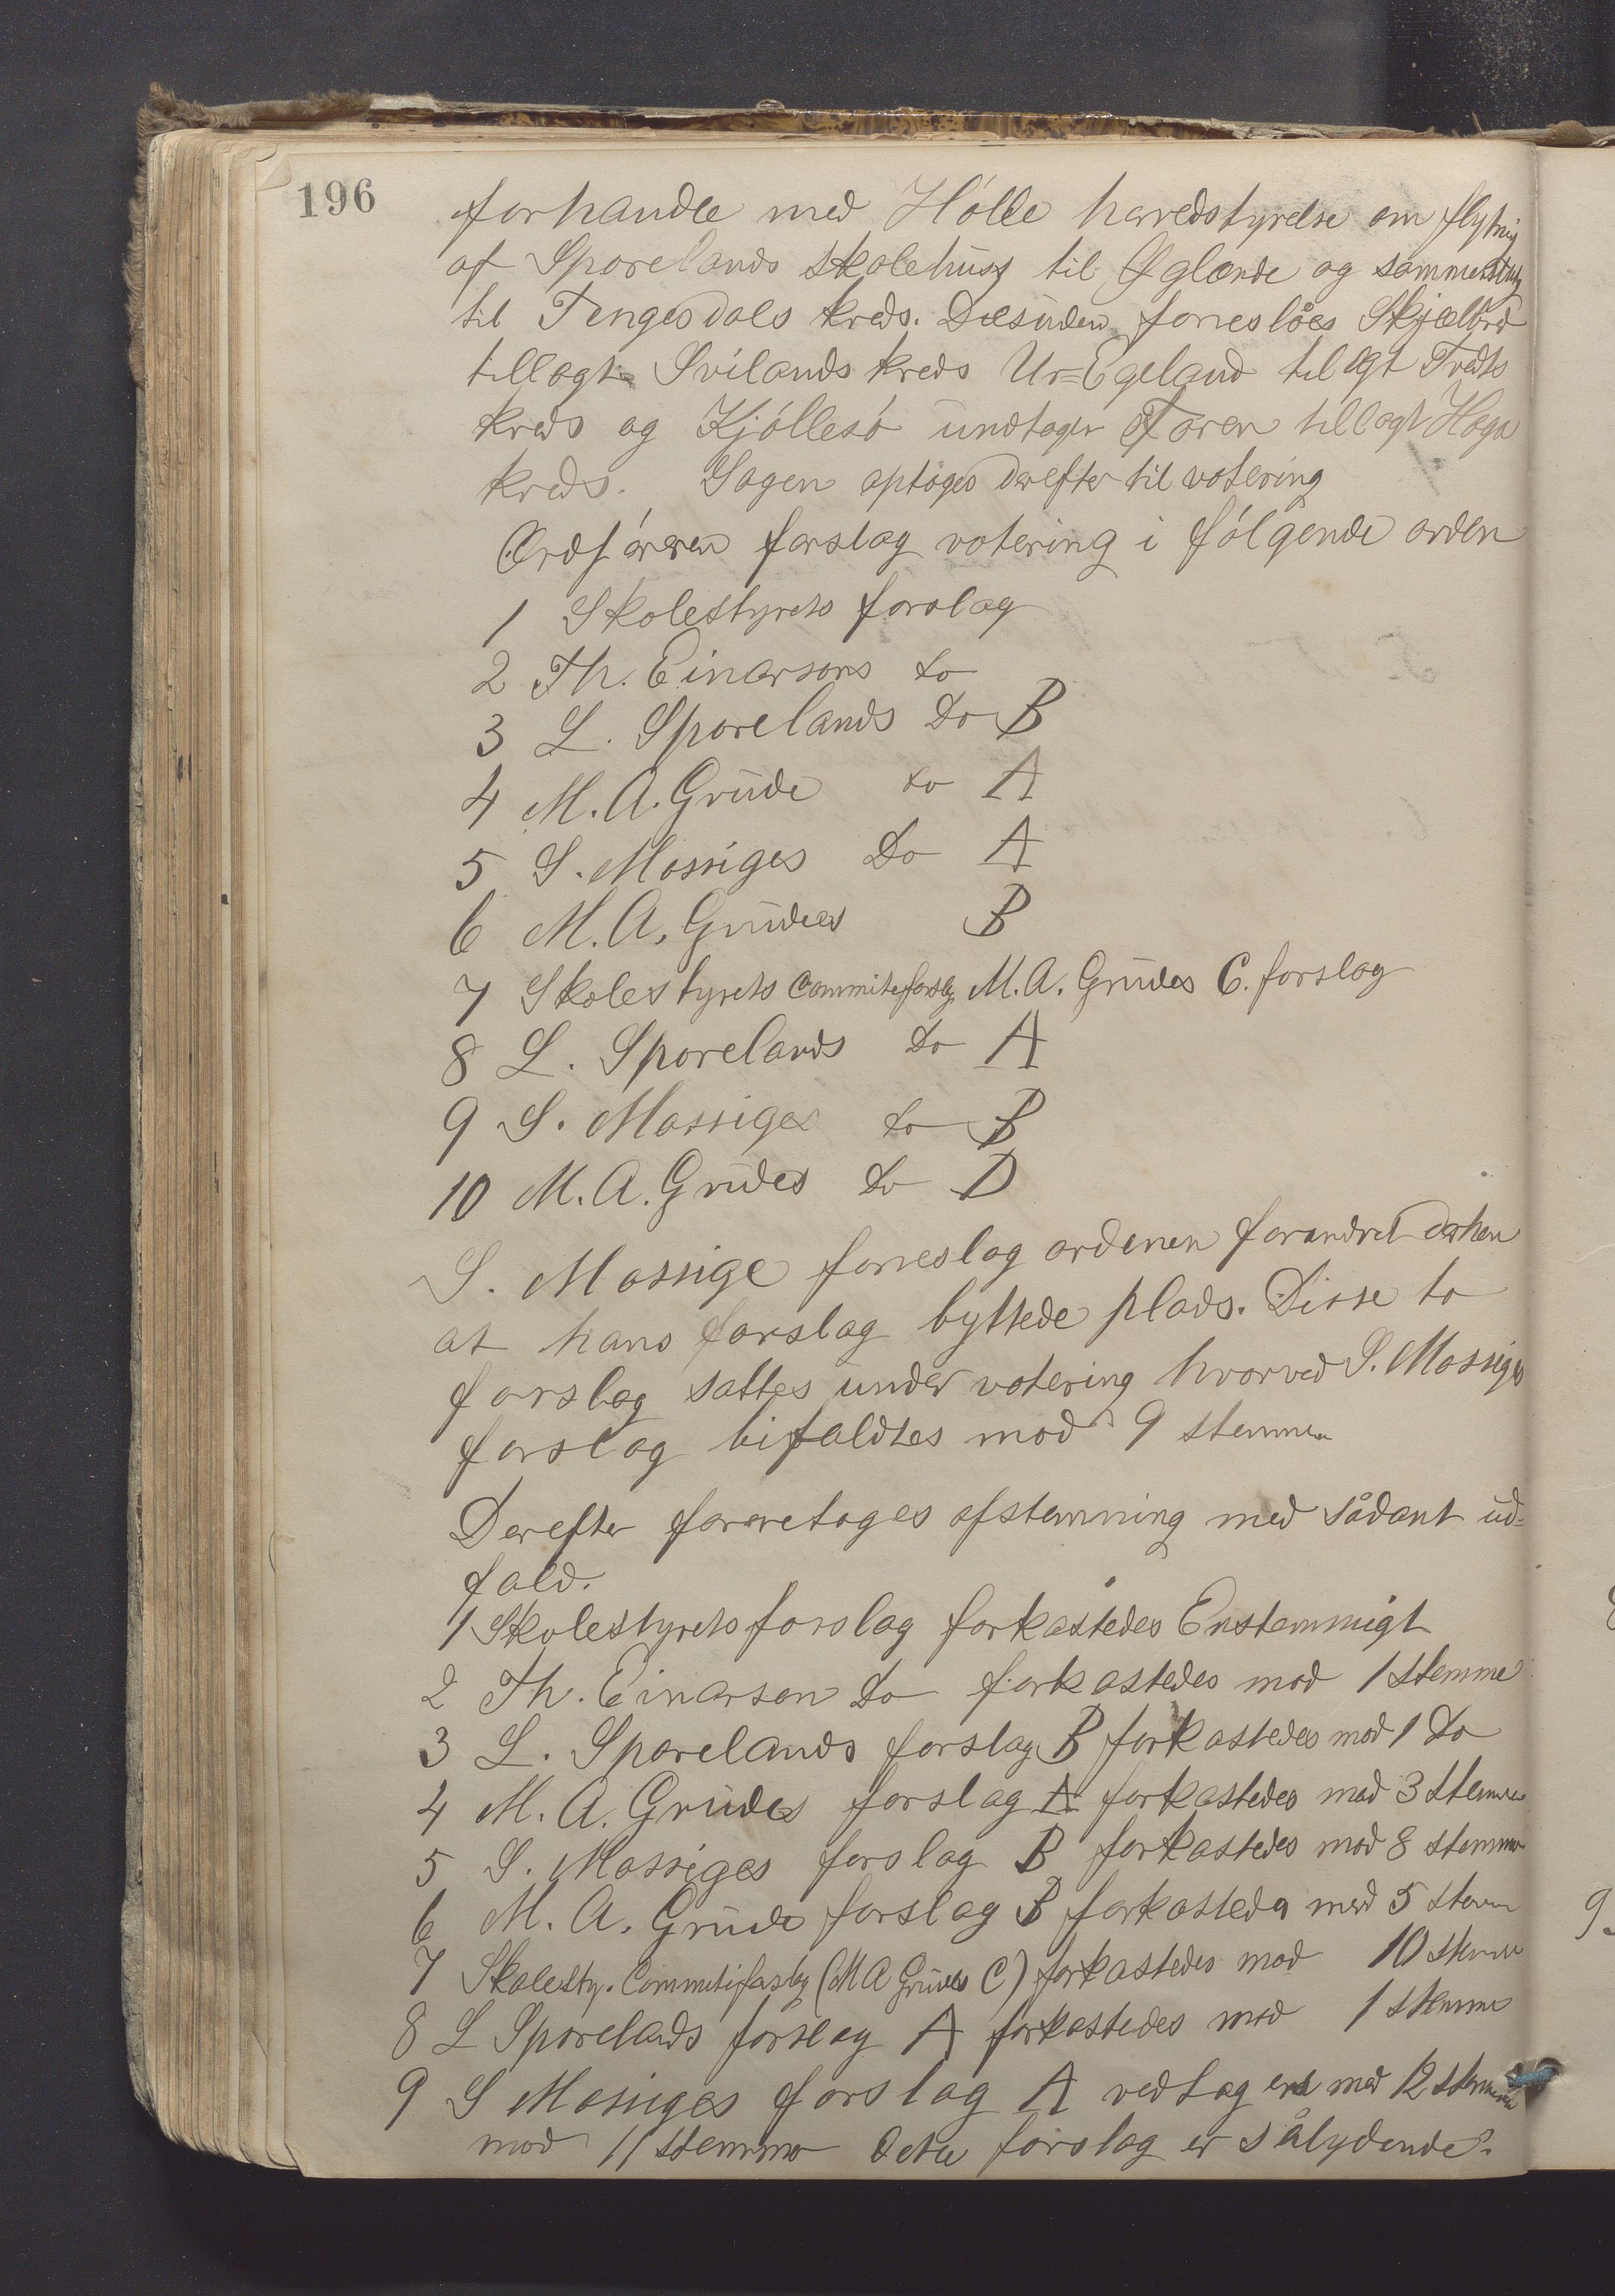 196
forhandle med Hólle herredstyrelse om flytnig
af Sporelands skolehuss til Øglænde og sammenslutg
til Tengesdals kreds. Desuden foreslåes Skjælbred
tillagt Svilands kreds Ur=Egeland tilagt Tvedts
kreds og Kjóllesó undtagen Foren tillagt Hoga
kreds. Sagen optoges derefter til votering
Ordføreren forslag votering i fólgende orden
1 Skolestyrets forslag
2 Th. Einarsons do
3 L. Sporelands Do B
4 M. A. Grude do A
5 S. Mossiges Do A
6 M. A. Grudes B
7 Skolestyrets Commiteforslg M. A. Grudes C. forslag
8 L. Sporelands Do A
9 S. Mossiges do B
10 M. A. Grudes Do D
S. Mossige foreslog ordenen forandret derhen
at hans forslag byttede plads. Disse to
forslag sattes under votering hvorved S. Mossiges
forslag bifaldtes mod 9 stemmer
Derefter foretoges afstemning med sådant ud=
fald.
1 Skolestyrets forslag forkastedes Enstemmigt
2 Th. Einarsen Do forkastedes mod 1 stemme
3 L. Sporelands forslag B forkastedes mod 1 Do
4 M. A. Grudes forslag A forkastedes mod 3 stemmer
5 S. Mossiges forslag B forkastedes mod 8 stemmer
6 M. A. Grude forslag B forkastedes mod 5 stemm
7 Skolesty. Commiteforslag (M A Grudes C) forkastedes mod 10 stemme
8 L Sporelads forslag A forkastedes mod 1 stemme
9 S Mossiges forslag A vedtog med 12 stemmer
mod 11 stemmer dette forslag er sålydende: